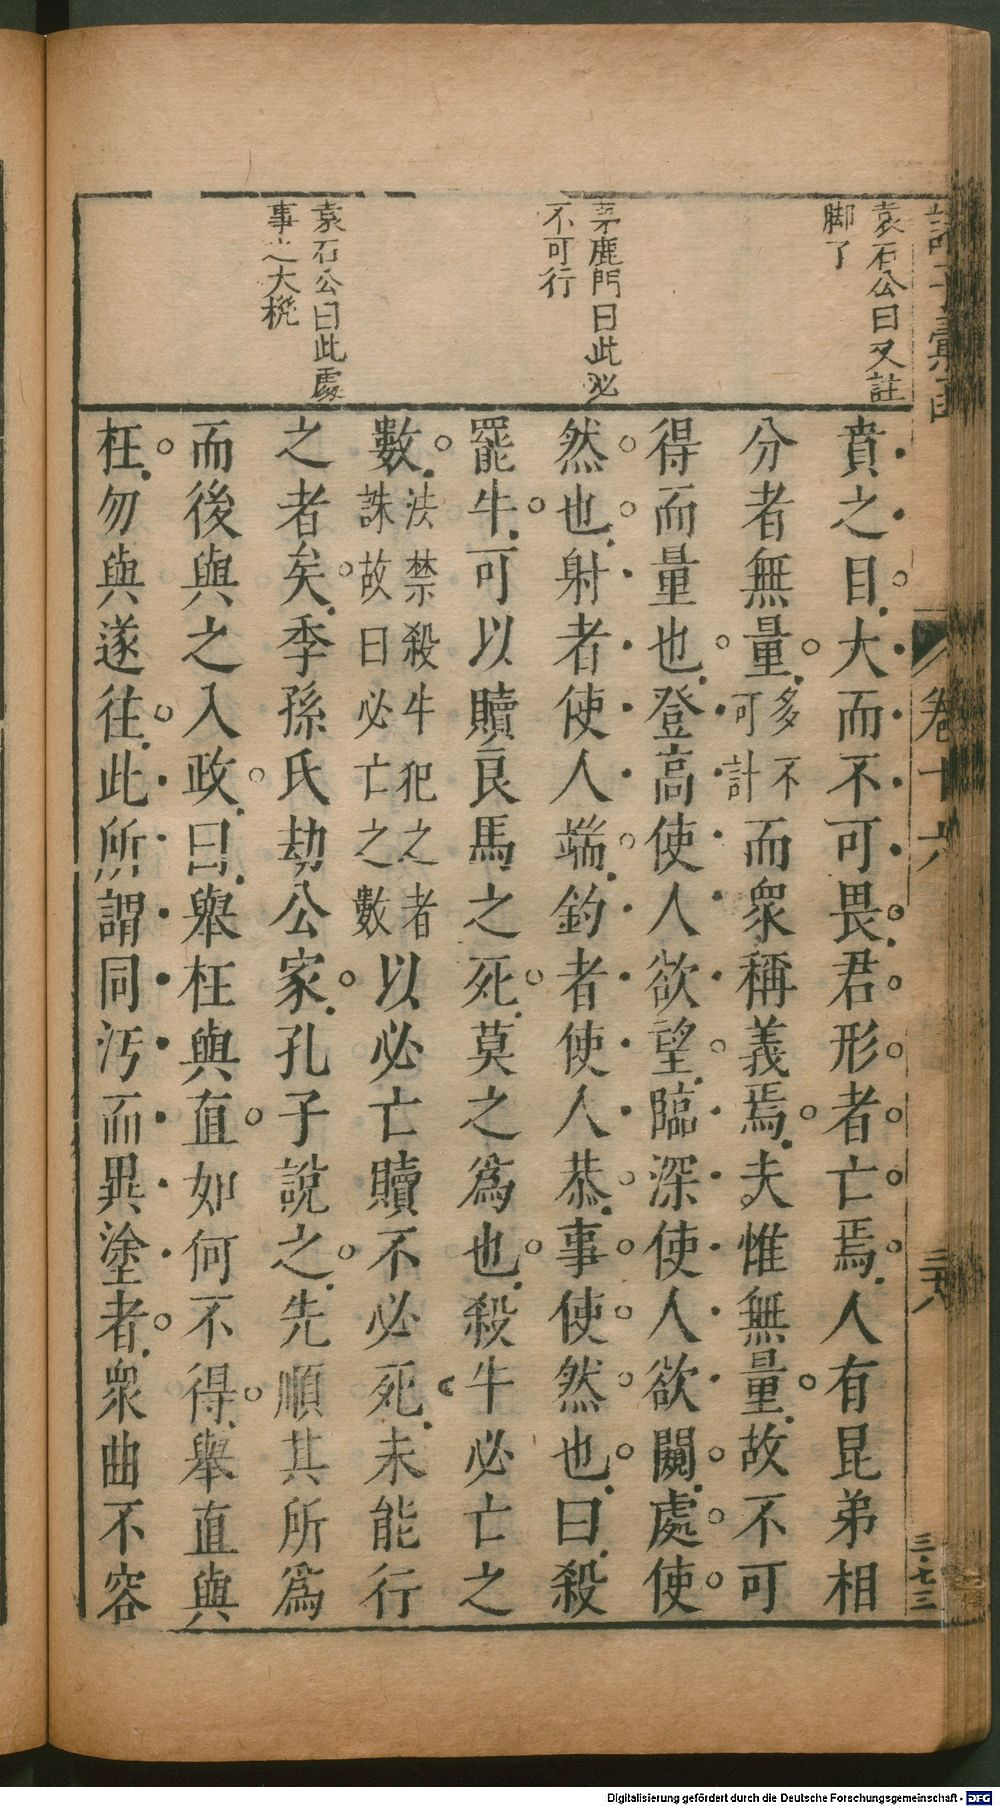 袁石公曰又註
脚了
茅鹿門曰此必
不可行
袁石公曰此處
事之大㮣
賁之目大而不可畏君形者亡焉人有昆弟相
分者無量多不可計而衆稱義焉夫惟無量故不可
得而量也登高使人欲望臨深使人欲闚處使
然也射者使人端釣者使人恭事使然也曰殺
罷牛可以贖良馬之死莫之爲也殺牛必亡之
數法禁殺牛犯之者誅故曰必亡之數以必亡贖不必死未能行
之者矣季孫氏劫公家孔子說之先順其所爲
而後與之入政曰舉枉與直如何不得舉直與
枉勿與遂往此所謂同汚而異塗者衆曲不容
卷十六
三十八
三七三
Digitalisierung gefördert durch die Deutsche Forschungsgemeinschaft - DFG